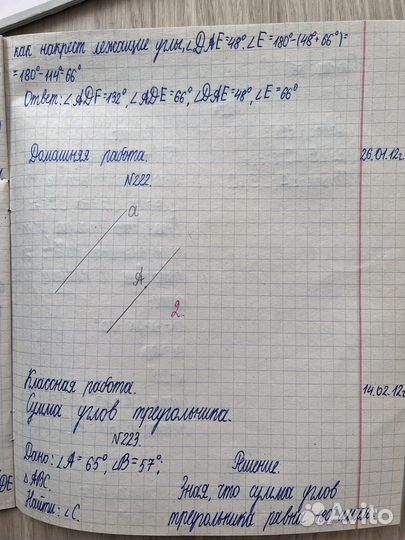 как накрест лежащие углы, ∠DAE=48°. ∠E=180°-(48°+66°)=
=180°-114°=66°
Ответ: ∠ADF=132°, ∠ADE=66°, ∠DAE=48°, ∠E=66°
Домашняя работа. 26.01.12г.
N222.
a
A
2
Классная работа. 14.02.12г.
Сумма углов треугольника.
N223.
Дано: ∠A=65°, ∠B=57°; Решение.
DE
△ABC. Зная, что сумма углов
Найти: ∠C. треугольника равна 180°
Avito